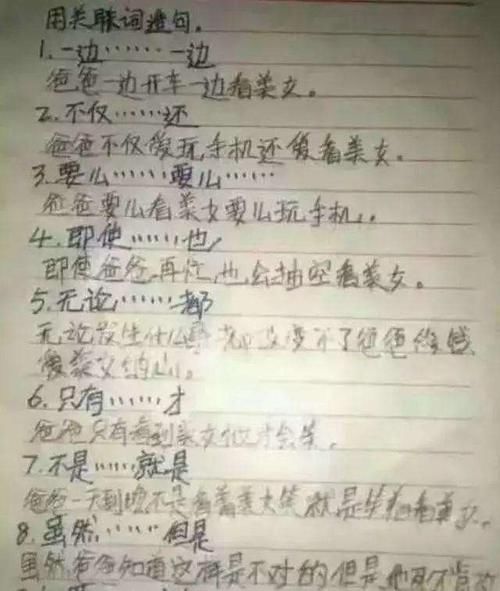 用关联词造句。
1.一边……一边
爸爸一边开车一边看美女。
2.不仅……还
爸爸不仅爱玩手机还爱看美女。
3.要么……要么……
爸爸要么看美女要么玩手机。
4.即使……也
即使爸爸再忙,也会抽空看美女。
5.无论……都
无论发生什么事都改变不了爸爸
爱美女的心。
6.只有……才
爸爸只有看到美女他才会笑。
7.不是……就是
爸爸一天到晚不是看着美女笑就是笑着看美女。
8.虽然……但是
虽然爸爸知道这样是不对的但是他